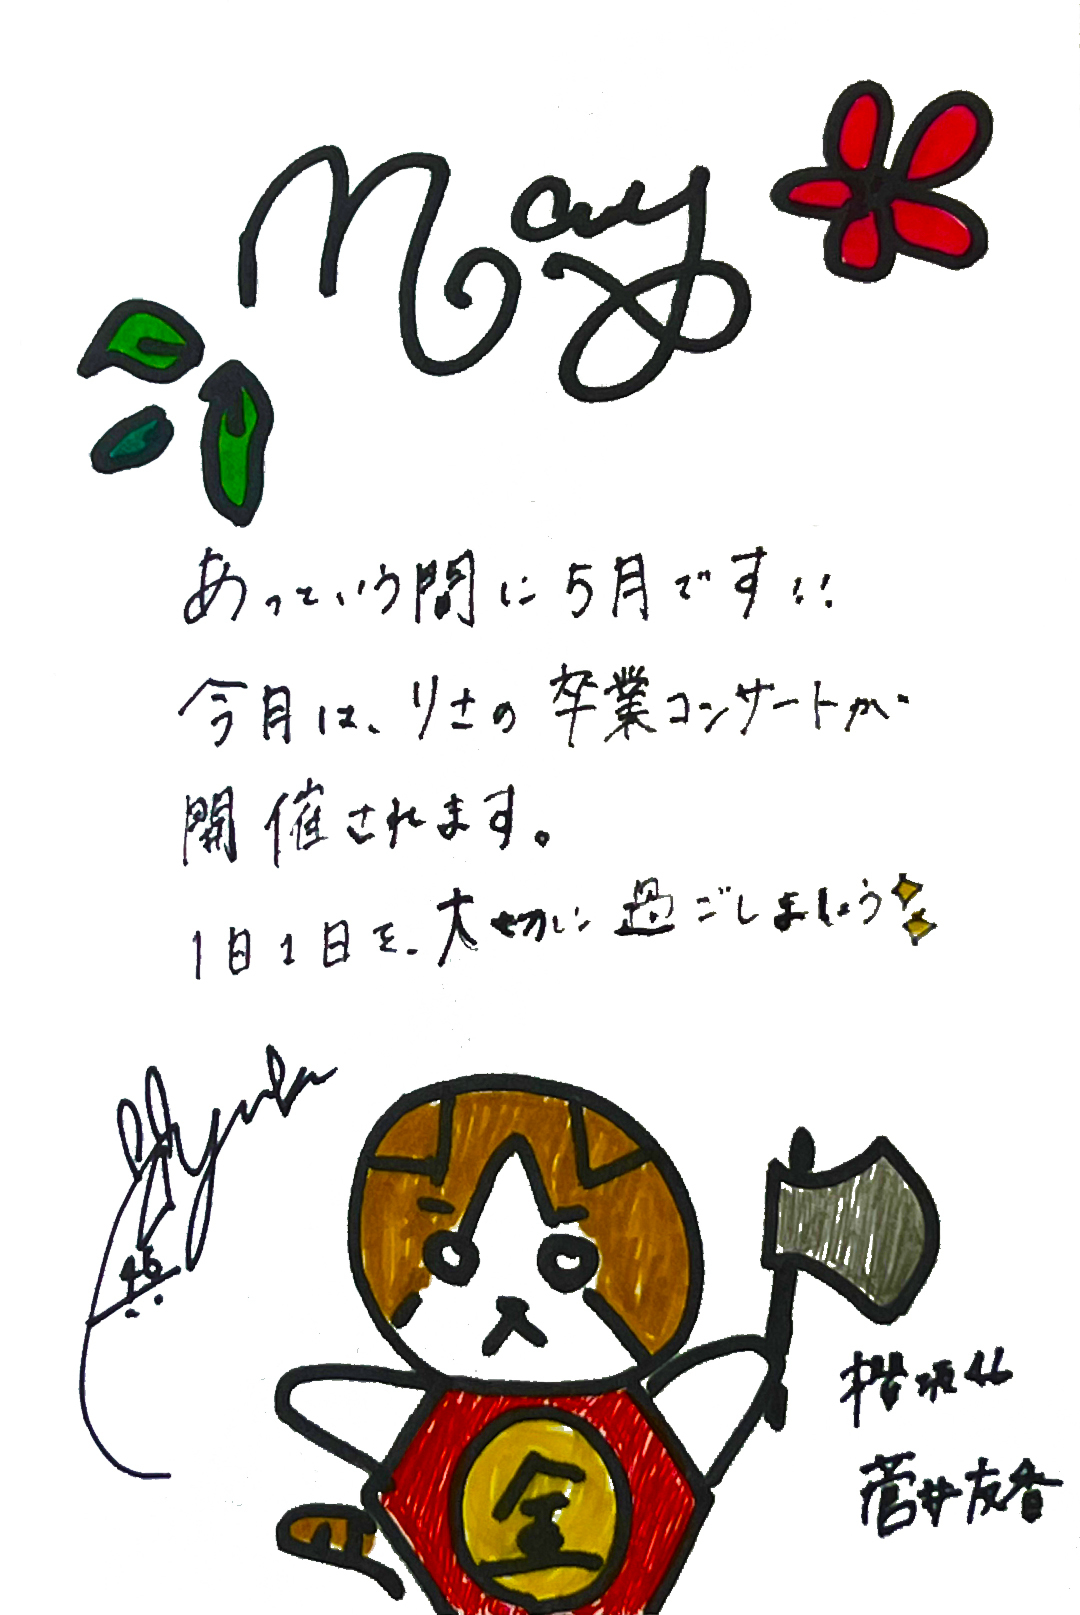 May
あっという間に5月です!!
今月は、りさの卒業コンサートが
開催されます。
1日1日を、大切に過ごしましょう
Yuuka
46
金
櫻坂46
菅井友香